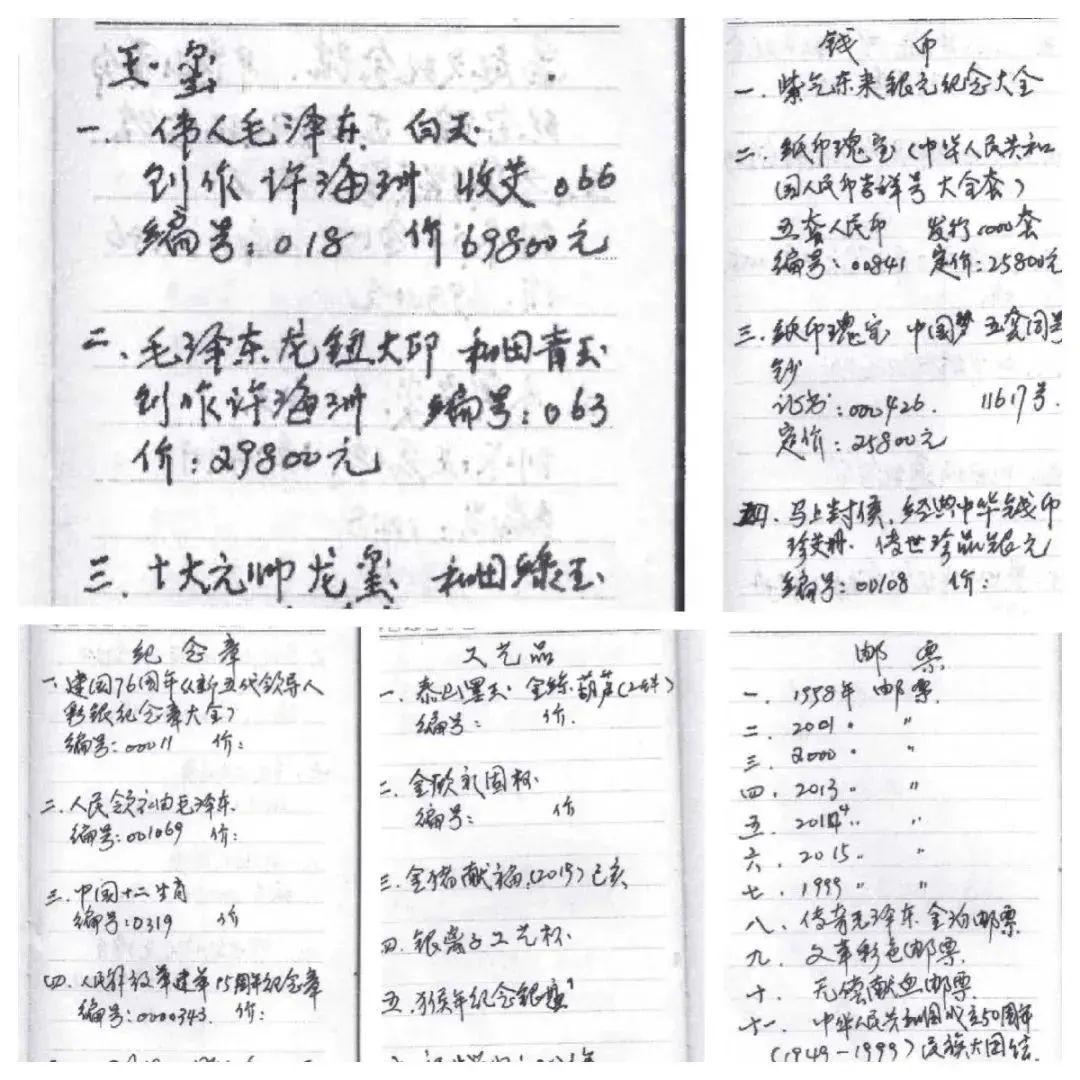 玉玺
一、伟人毛泽东 白玉
创作许海洲 收藏.066
编号:018 价69800元
二、毛泽东龙钮大印 和田青玉
创作许海洲 编号:063
价:29800元
三、十大元帅龙玺 和田绿玉
钱币
一、紫气东来银元纪念大全
二、纸币瑰宝(中华人民共和
国人民币吉祥号大全套)
五套人民币 发行1000套
编号:00841 定价:25800元
三、纸币瑰宝 中国梦 五套同号
钞
证书:000426. 11617号.
定价:25800元
四、马上封侯,经典中华钱币
珍藏册. 传世珍品银元
编号:00108 价:
纪念章
一、建国76周年《新五代领导人
彩银纪念章大全》
编号:00011 价:
二、人民领袖毛泽东.
编号:001069 价:
三、中国十二生肖
编号:0319 价
四、人民解放军建军85周年纪念章
编号:0000343. 价:
工艺品
一、泰山墨玉 金丝葫芦(2件)
编号: 价.
二、金砍 杯.
编号: 价
三、金猪献福,(2019)己亥
四、银离子工艺杯.
五、猴年纪念银
邮票
一、1998年 邮票.
二、2001 〃 〃
三、2000 〃 〃
四、2013 〃 〃
五、2014 〃 〃
六、2015 〃 〃
七、1999 〃 〃
八、传奇毛泽东金泊邮票
九、文革彩色邮票.
十、无偿献血邮票.
十一、中华人民共和国成立50周年
(1949-1999)民族大团结.